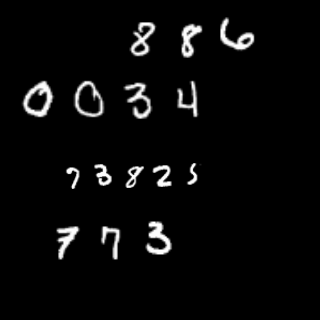 8 8 6
0 0 3 4
7 3 8 2 5
7 7 3